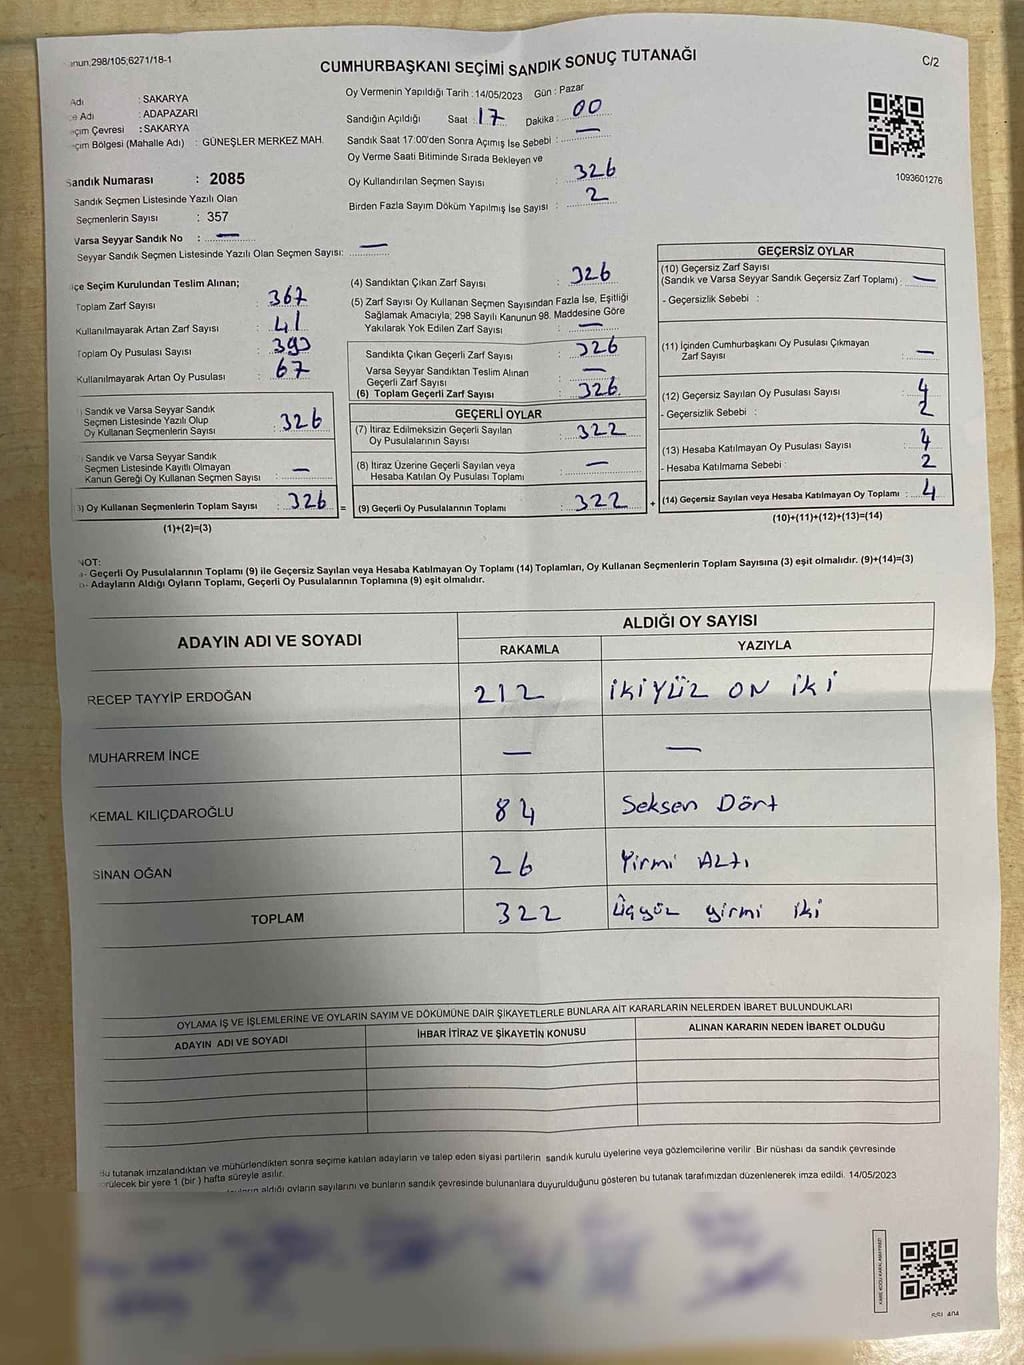 298/105;6271/18-1
C/2
CUMHURBAŞKANI SEÇİMİ SANDIK SONUÇ TUTANAĞI
Adı : SAKARYA
Adı : ADAPAZARI
Çevresi : SAKARYA
Bölgesi (Mahalle Adı) : GÜNEŞLER MERKEZ MAH.
Sandık Numarası : 2085
Sandık Seçmen Listesinde Yazılı Olan
Seçmenlerin Sayısı : 357
Varsa Seyyar Sandık No : —
Seyyar Sandık Seçmen Listesinde Yazılı Olan Seçmen Sayısı: —
Oy Vermenin Yapıldığı Tarih : 14/05/2023 Gün : Pazar
Sandığın Açıldığı Saat : 17 Dakika : 00
Sandık Saat 17:00'den Sonra Açımış İse Sebebi : —
Oy Verme Saati Bitiminde Sırada Bekleyen ve
Oy Kullandırılan Seçmen Sayısı : 326
Birden Fazla Sayım Döküm Yapılmış İse Sayısı : 2
1093601276
İlçe Seçim Kurulundan Teslim Alınan;
Toplam Zarf Sayısı : 367
Kullanılmayarak Artan Zarf Sayısı : 41
Toplam Oy Pusulası Sayısı : 393
Kullanılmayarak Artan Oy Pusulası : 67
Sandık ve Varsa Seyyar Sandık
Seçmen Listesinde Yazılı Olup
Oy Kullanan Seçmenlerin Sayısı : 326
Sandık ve Varsa Seyyar Sandık
Seçmen Listesinde Kayıtlı Olmayan
Kanun Gereği Oy Kullanan Seçmen Sayısı : —
3) Oy Kullanan Seçmenlerin Toplam Sayısı : 326 =
(1)+(2)=(3)
(4) Sandıktan Çıkan Zarf Sayısı : 326
(5) Zarf Sayısı Oy Kullanan Seçmen Sayısından Fazla İse, Eşitliği
Sağlamak Amacıyla, 298 Sayılı Kanunun 98. Maddesine Göre
Yakılarak Yok Edilen Zarf Sayısı : —
Sandıkta Çıkan Geçerli Zarf Sayısı : 326
Varsa Seyyar Sandıktan Teslim Alınan
Geçerli Zarf Sayısı : —
(6) Toplam Geçerli Zarf Sayısı : 326
GEÇERLİ OYLAR
(7) İtiraz Edilmeksizin Geçerli Sayılan
Oy Pusulalarının Sayısı : 322
(8) İtiraz Üzerine Geçerli Sayılan veya
Hesaba Katılan Oy Pusulası Toplamı : —
(9) Geçerli Oy Pusulalarının Toplamı : 322 +
GEÇERSİZ OYLAR
(10) Geçersiz Zarf Sayısı
(Sandık ve Varsa Seyyar Sandık Geçersiz Zarf Toplamı) : —
- Geçersizlik Sebebi :
(11) İçinden Cumhurbaşkanı Oy Pusulası Çıkmayan
Zarf Sayısı : —
(12) Geçersiz Sayılan Oy Pusulası Sayısı : 4
- Geçersizlik Sebebi : 2
(13) Hesaba Katılmayan Oy Pusulası Sayısı : 4
- Hesaba Katılmama Sebebi : 2
(14) Geçersiz Sayılan veya Hesaba Katılmayan Oy Toplamı : 4
(10)+(11)+(12)+(13)=(14)
NOT:
a- Geçerli Oy Pusulalarının Toplamı (9) ile Geçersiz Sayılan veya Hesaba Katılmayan Oy Toplamı (14) Toplamları, Oy Kullanan Seçmenlerin Toplam Sayısına (3) eşit olmalıdır. (9)+(14)=(3)
b- Adayların Aldığı Oyların Toplamı, Geçerli Oy Pusulalarının Toplamına (9) eşit olmalıdır.
ADAYIN ADI VE SOYADI
ALDIĞI OY SAYISI
RAKAMLA YAZIYLA
RECEP TAYYİP ERDOĞAN 212 İKİYÜZ ON İKİ
MUHARREM İNCE — —
KEMAL KILIÇDAROĞLU 84 Seksen Dört
SİNAN OĞAN 26 Yirmi ALTI
TOPLAM 322 Üçyüz yirmi iki
OYLAMA İŞ VE İŞLEMLERİNE VE OYLARIN SAYIM VE DÖKÜMÜNE DAİR ŞİKAYETLERLE BUNLARA AİT KARARLARIN NELERDEN İBARET BULUNDUKLARI
ADAYIN ADI VE SOYADI İHBAR İTİRAZ VE ŞİKAYETİN KONUSU ALINAN KARARIN NEDEN İBARET OLDUĞU
Bu tutanak imzalandıktan ve mühürlendikten sonra seçime katılan adayların ve talep eden siyasi partilerin sandık kurulu üyelerine veya gözlemcilerine verilir. Bir nüshası da sandık çevresinde
bir yere 1 (bir) hafta süreyle asılır.
aldığı oyların sayılarını ve bunların sandık çevresinde bulunanlara duyurulduğunu gösteren bu tutanak tarafımızdan düzenlenerek imza edildi. 14/05/2023